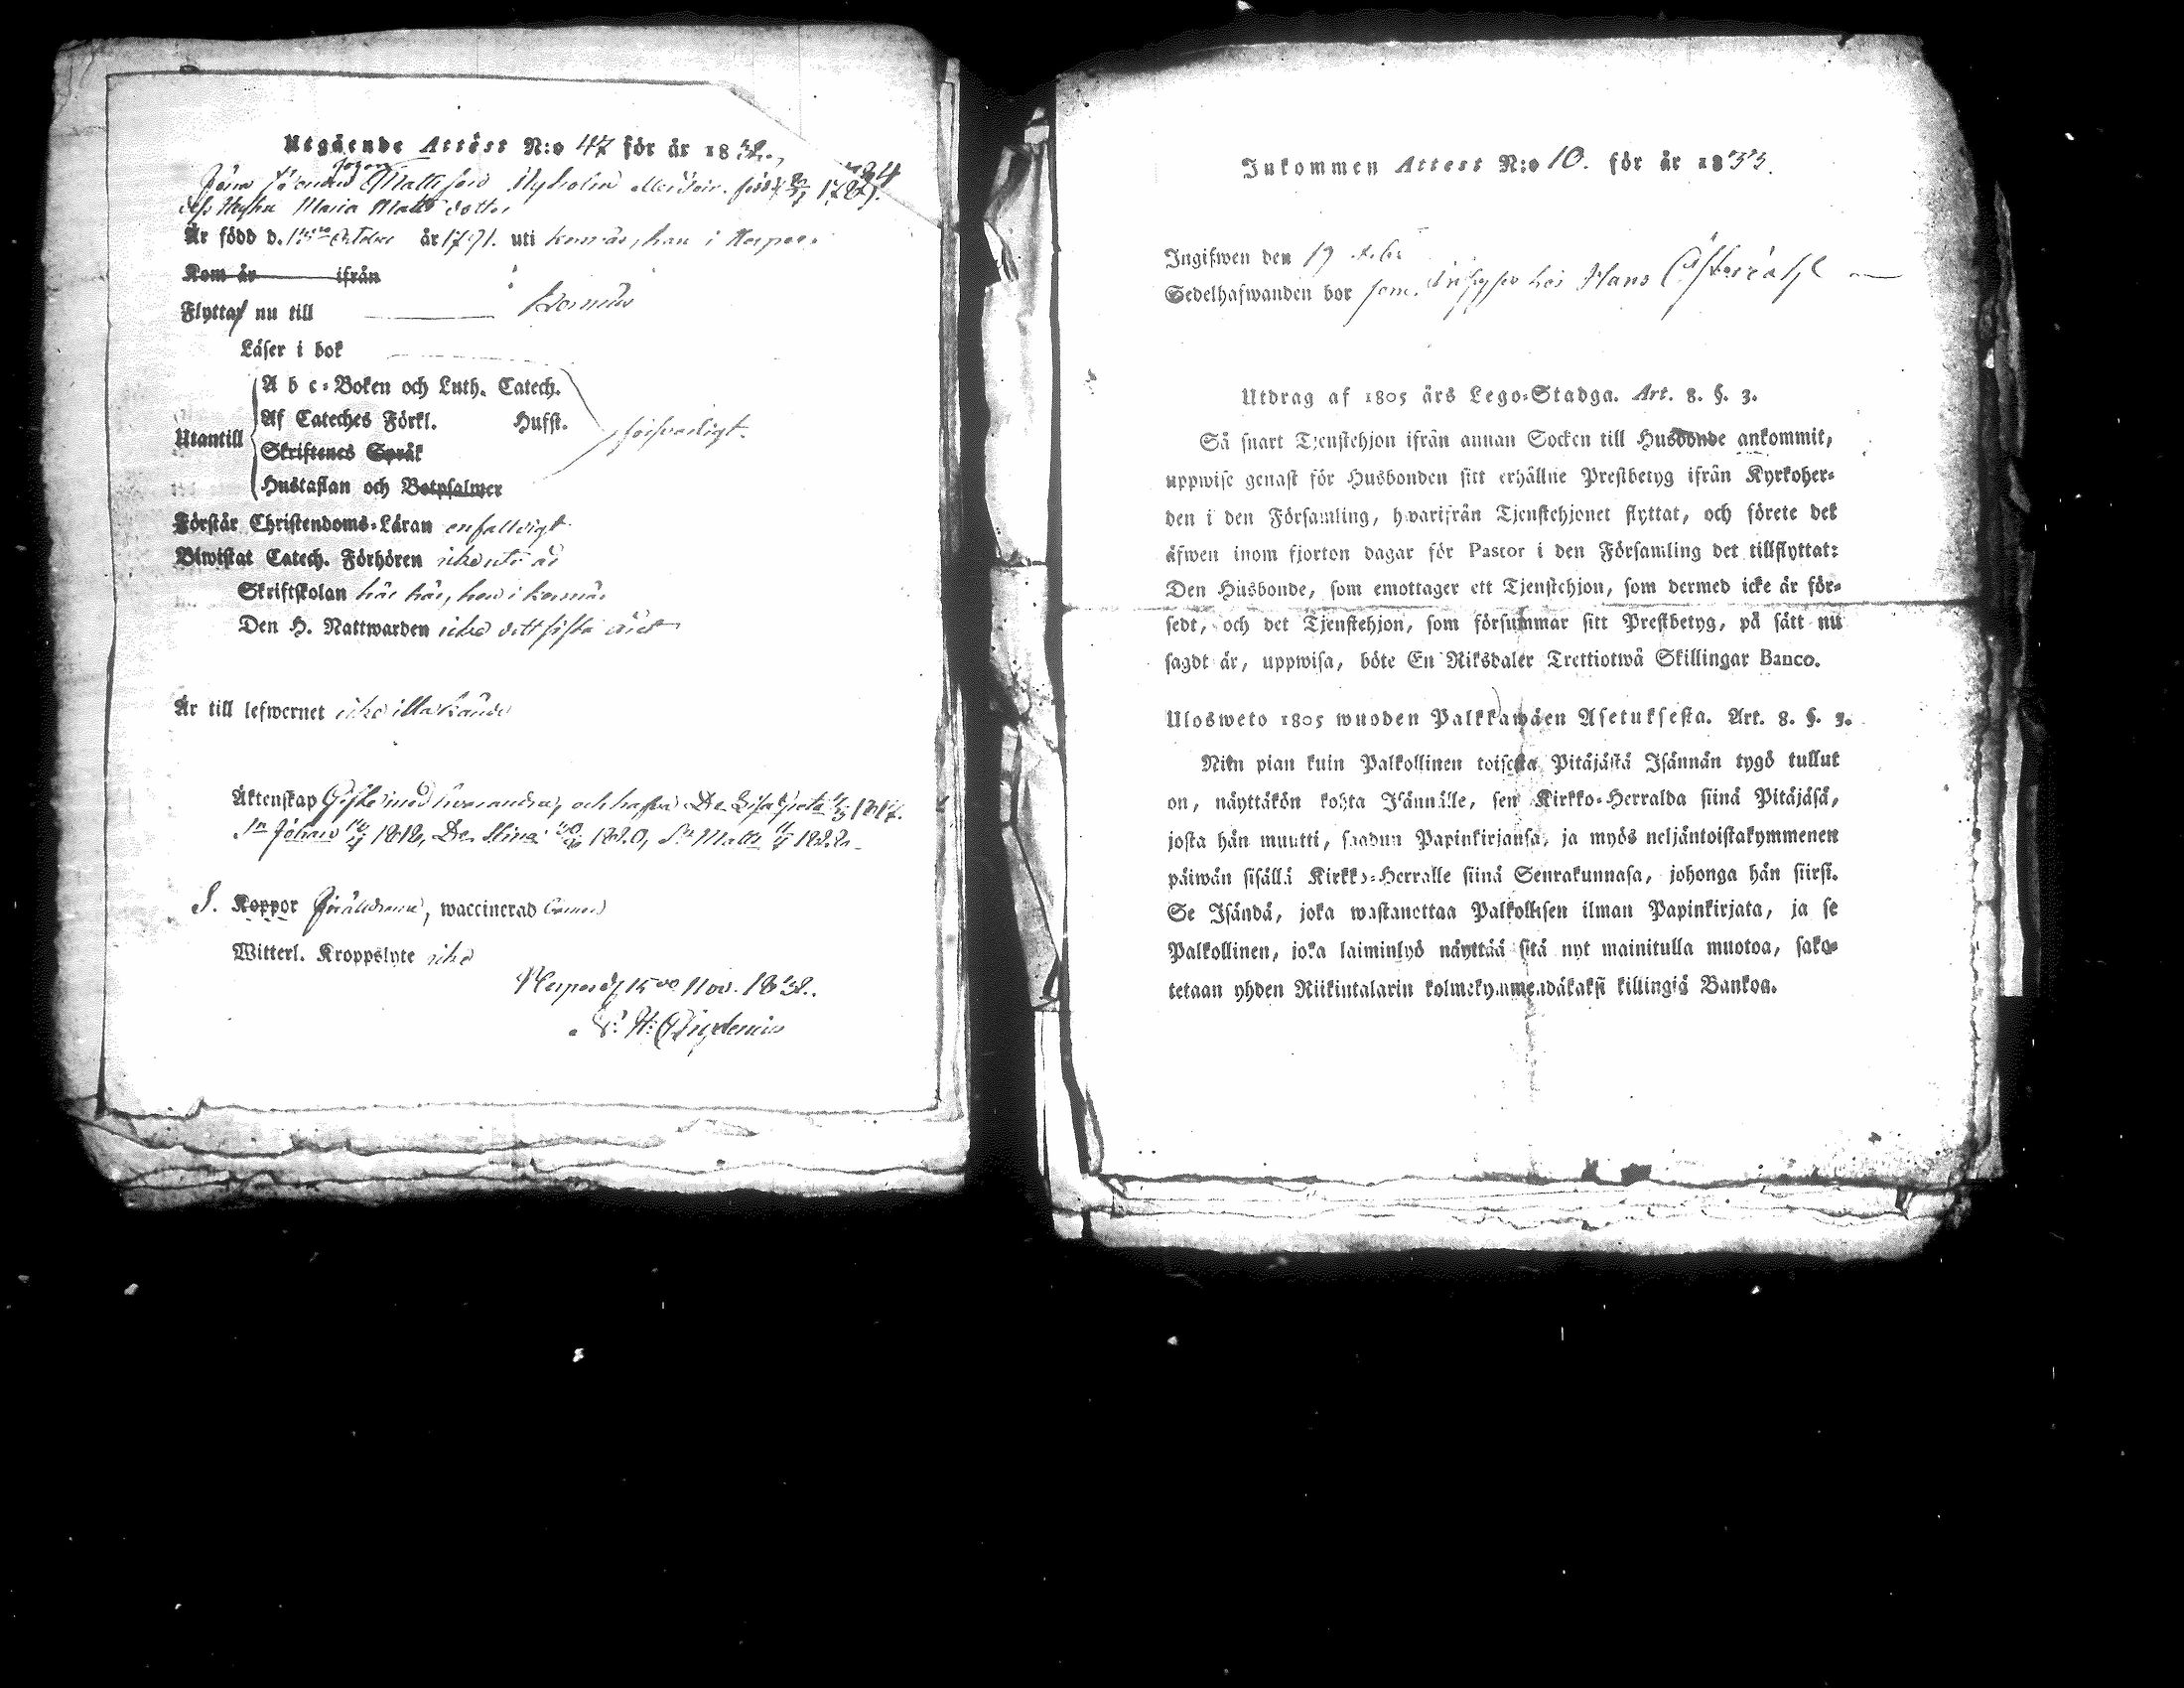 Utgående Attest N:o 47 för år 1832.
Mattsson Nyholm 1784
Maria Matts dotter
Är född d. October år 1791. uti kernäs, han i Nerpes.
Kom år ifrån
Flyttat nu till
Läser i bok
A b c-Boken och Luth. Catech.
Af Cateches Förkl. Husst.
Utantill försvarligt.
Skriftenes Språk
Hustaflan och Botpsalmer
Förstår Christendoms-Läran enfalldigt
Biwistat Catech. Förhören
Skriftskolan här, hon i
Den H. Nattwarden icke sista året
Är till lefwernet icke illa kände
Äktenskap Gifte med hvarandra, och hafva Dr Lisa Greta 1817.
Sn Johan 1818, Dr Stina 1820, Sn Matts 1822.
S. Koppor Föräldrarne, waccinerad barnen
Witterl. Kroppslyte icke
Nerpes d. 15 Nov. 1832.
Inkommen Attest N:o 10. för år 1833.
Ingifwen den 19
Sedelhafwanden bor som hos Hans
Utdrag af 1805 års Lego-Stadga. Art. 8. §. 3.
Så snart Tjenstehjon ifrån annan Socken till Husbonde ankommit,
uppwise genast för Husbonden sitt erhållne Prestbetyg ifrån Kyrkoher-
den i den Församling, hwarifrån Tjenstehjonet flyttat, och förete det
äfwen inom fjorton dagar för Pastor i den Församling det tillflyttat:
Den Husbonde, som emottager ett Tjenstehjon, som dermed icke är för-
sedt, och det Tjenstehjon, som försummar sitt Prestbetyg, på sätt nu
sagdt är, uppwisa, böte En Riksdaler Trettiotwå Skillingar Banco.
Ulosweto 1805 wuoden Palkkawäen Asetuksesta. Art. 8. §. 3.
Niin pian kuin Palkollinen toisesta Pitäjästä Isännän tygö tullut
on, näyttäkön kohta Isännälle, sen Kirkko-Herralda siinä Pitäjäsä,
josta hän muutti, saadun Papinkirjansa, ja myös neljäntoistakymmenen
päiwän sisällä Kirkko-Herralle siinä Seurakunnasa, johonga hän siirsi.
Se Isändä, joka wastanottaa Palkollisen ilman Papinkirjata, ja se
Palkollinen, joka laiminlyö näyttää sitä nyt mainitulla muotoa, sako-
tetaan yhden Riikintalarin kolmekymmendäkaksi killingiä Bankoa.